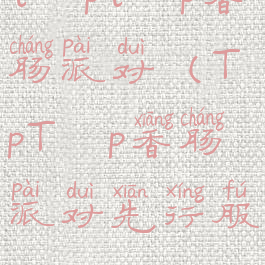 cháng pài duì
肠派对 (T
xiāng cháng
pT p香肠
pài duì xiān xíng fú
派对先行服